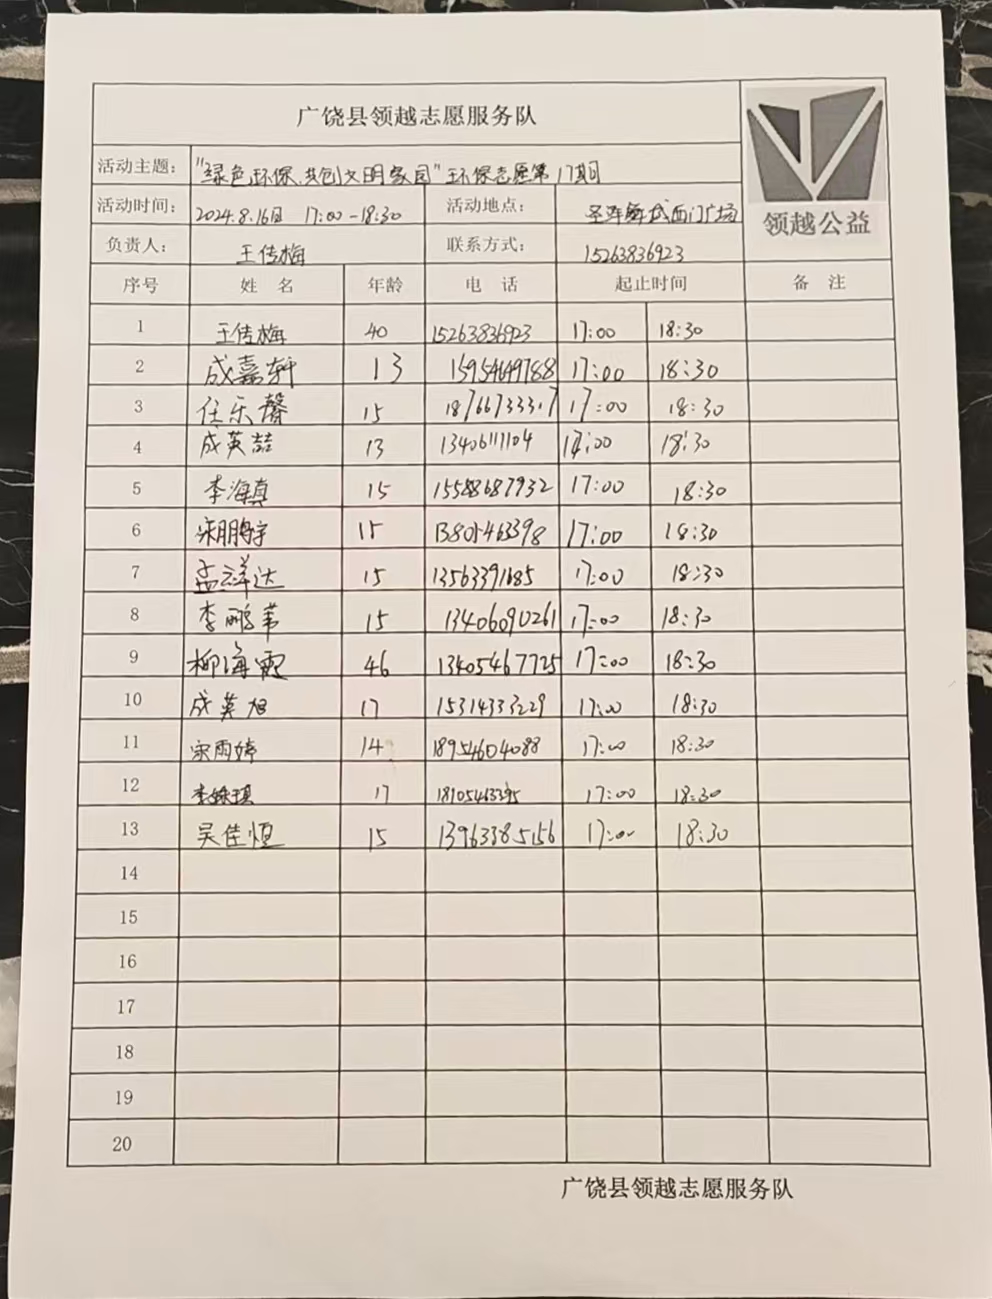 广饶县领越志愿服务队
领越公益
活动主题： "绿色环保、共创文明家园"环保志愿第17期
活动时间： 2024.8.16日 17:00-18:30 活动地点： 西门广场
负责人： 王传梅 联系方式： 15263836923
序号 姓名 年龄 电话 起止时间 备注
1 王传梅 40 15263836923 17:00 18:30
2 成嘉轩 13 15954649788 17:00 18:30
3 任乐馨 15 17:00 18:30
4 成英喆 13 13406111104 17:00 18:30
5 李海真 15 15588687932 17:00 18:30
6 宋鹏宇 15 13805463398 17:00 18:30
7 孟祥达 15 13563391685 17:00 18:30
8 李鹏 15 13406090261 17:00 18:30
9 柳海霞 46 13405467725 17:00 18:30
10 成英旭 17 15314333229 17:00 18:30
11 宋雨婷 14 18954604088 17:00 18:30
12 李 琪 17 17:00 18:30
13 吴佳恒 15 13963385156 17:00 18:30
14
15
16
17
18
19
20
广饶县领越志愿服务队